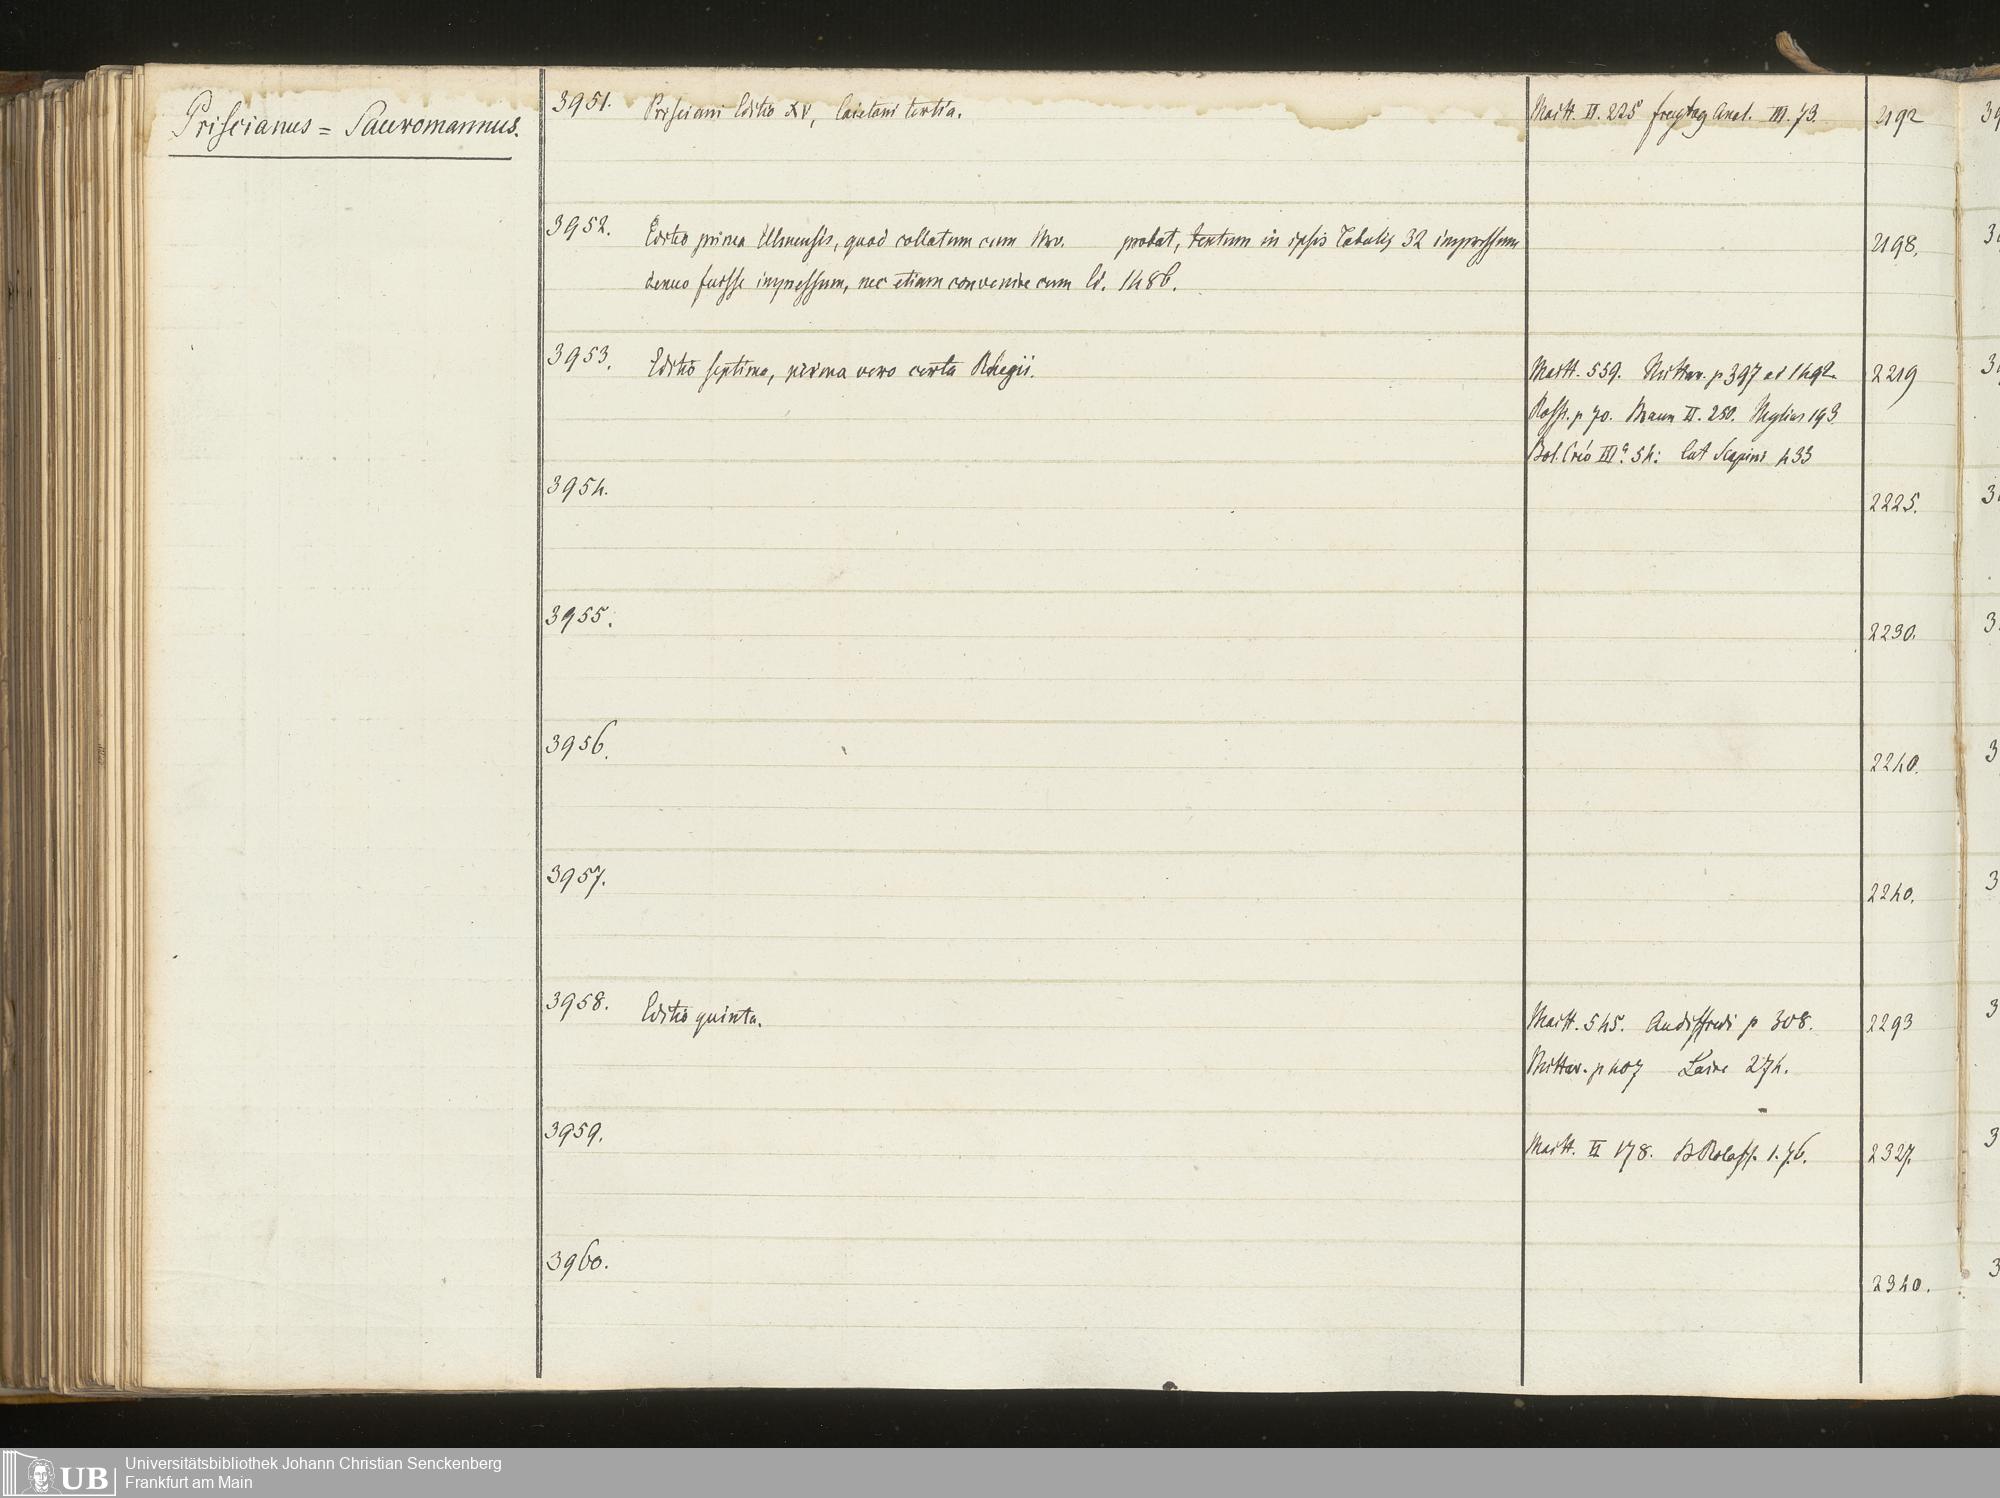 Priscianus = Sauromannus.
3951. Prisciani Editio XV, Caietani tertia. Maitt. II. 225 freytag Anal. III. 73. 2192
3952. Editio prima Ulmensis, quod collatum cum Nro. probat, textum in ipsis Tabulis 32 impressum 2198.
denuo fuisse impressum, nec etiam convenire cum Ed. 1486.
3953. Editio septima, prima vero certa Rhegii. Maitt. 559. Mittar. p 397 ad 1492. 2219
Ross. p 70. Braun II. 250. 193
III. 54: Cat 433
3954. 2225.
3955. 2230.
3956. 2240.
3957. 2240.
3958. Editio quinta. Maitt. 545. Audiffredi p 308. 2293
Mittar. p 407 Laire 274.
3959. Maitt. II 178. 2327.
3960. 2340.
UB
Universitätsbibliothek Johann Christian Senckenberg
Frankfurt am Main